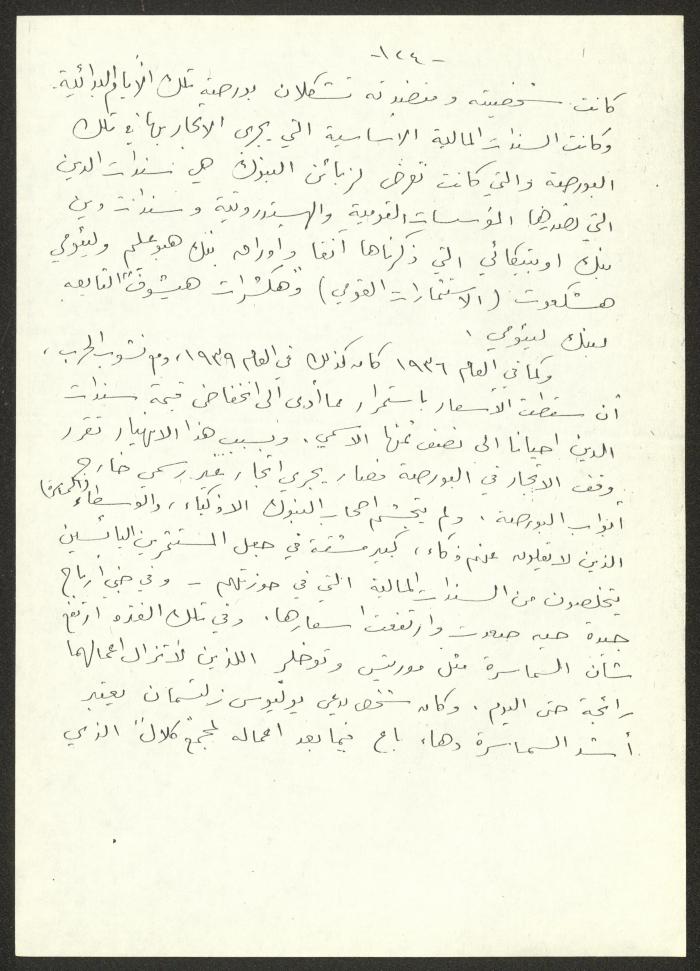 -١٢٤-
كانت شخصيته و منضدته تشكلان بورصة تلك الأيام البدائية.
وكانت السندات المالية الأساسية التي يجري الاتجار بها في تلك
البورصة والتي كانت تعرض لزبائن البنوك هي سندات الدين
التي تصدرها المؤسسات القومية والهستدروتية و سندات دين
بنك اوبتيكائي التي ذكرناها آنفا و اوراق بنك هبوعليم وليئومي
هشكعوت (الاستثمارات القومي) و"هكشرات هيشوف" التابعه
لبنك ليئومي .
وكما في العام ١٩٣٦ كان كذلك في العام ١٩٣٩، ومع نشوب الحرب،
أن سقطت الأسعار باستمرار مما أدى الى انخفاض قيمة سندات
الدين احيانا الى نصف ثمنها الاسمي. وبسبب هذا الانهيار تقرر
وقف الاتجار في البورصة فصار يجري اتجار غير رسمي خارج
أبواب البورصة. ولم يتجشم اصحاب البنوك الاذكياء، والوسطاء (السماسرة)
الذين لا يقلون عنهم ذكاء، كبير مشقة في جعل المستثمرين اليائسين
يتخلصون من السندات المالية التي في حوزتهم - وفي جني أرباح
جيدة حين صعدت وارتفعت اسعارها. وفي تلك الفترة ارتفع
شأن السماسرة مثل موريتس وتوخلر اللذين لا تزال اعمالهما
رائجة حتى اليوم. وكان شخص يدعى يوليوس زلتسمان يعتبر
أشد السماسرة دهاء، باع فيما بعد اعماله لمجمع "كلال" الذي